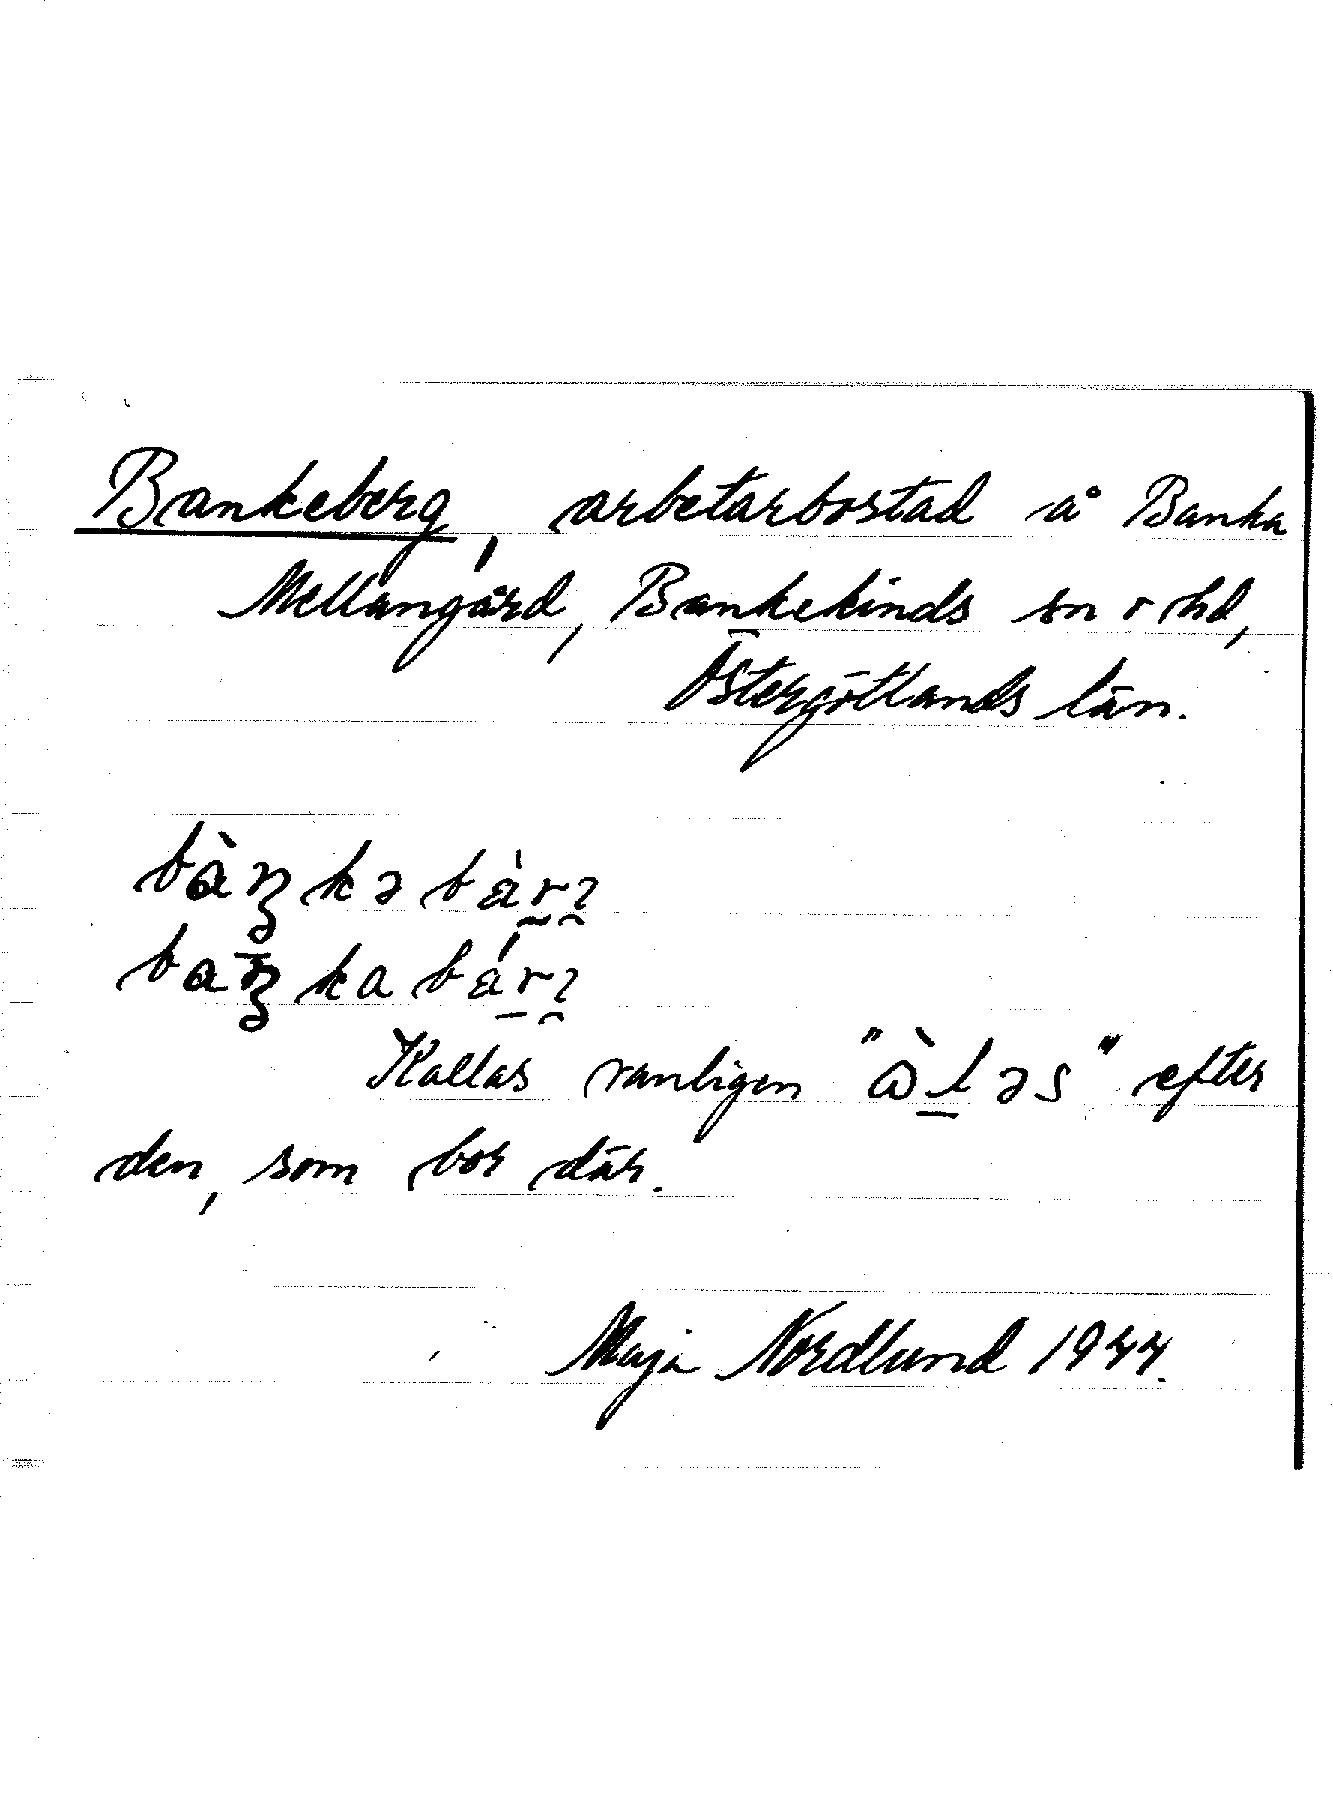 Bankeberg, arbetarbostad å Banka
Mellangård, Bankekinds sn o hd,
Östergötlands län.
bàŋkəbàrɿ
baŋkabárɿ
Kallas vanligen "ὼləs" efter
den, som bor där.
Maja Nordlund 1944.